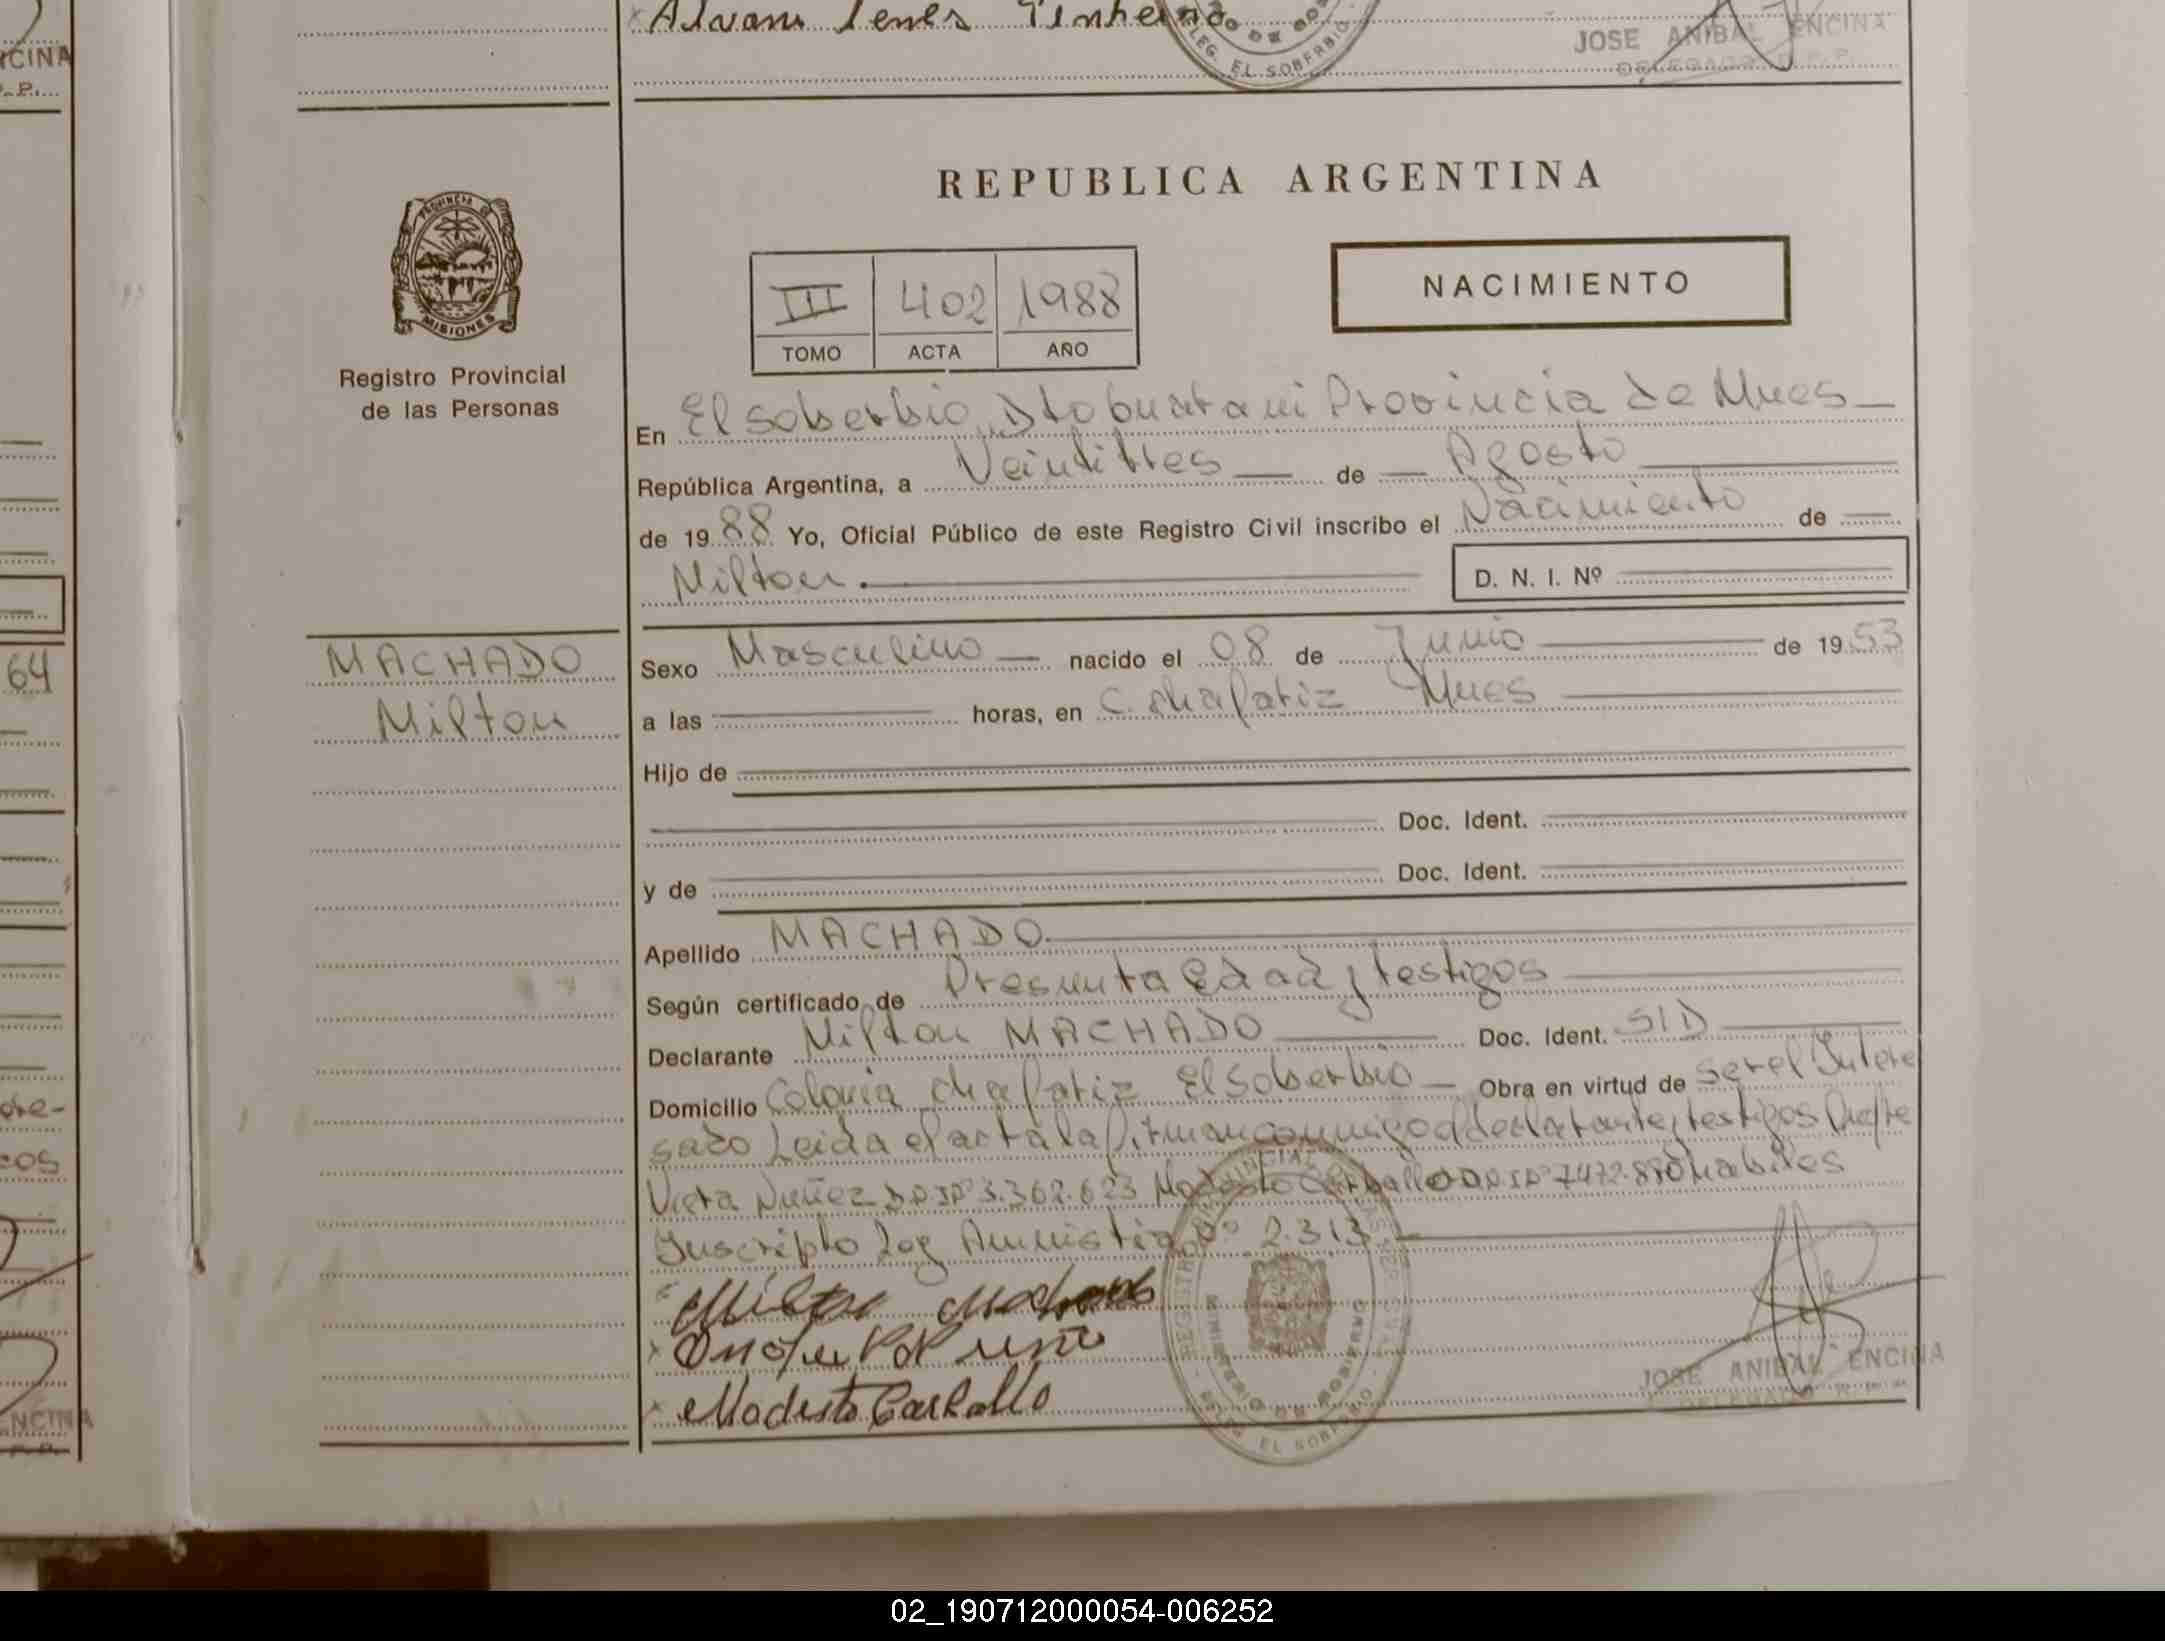 CINA
. P.
JOSE ANIBAL ENCINA
DELEGADO R. P. P.
DELEG. EL SOBERBIO
REPUBLICA ARGENTINA
PROVINCIA DE
MISIONES
Registro Provincial
de las Personas
NACIMIENTO
III 402 1988
TOMO ACTA AÑO
En El Soberbio, Dto Guarani Provincia de Mnes
República Argentina, a Veintitres de Agosto
de 1988 Yo, Oficial Público de este Registro Civil inscribo el Nacimiento de
Milton.
D. N. I. Nº
64
MACHADO
Milton
Sexo Masculino nacido el 08 de Junio de 1953
a las horas, en C. Chafariz Mnes
Hijo de
Doc. Ident.
y de Doc. Ident.
Apellido MACHADO
Según certificado de Presunta Edad y testigos
Declarante Milton MACHADO Doc. Ident. S/D
Domicilio Colonia Chafariz El Soberbio Obra en virtud de ser el Intere
sado Leida el acta la firman conmigo el declarante y testigos
Nuñez 3.362.623 Modesto Carballo 7472.880 habiles
Inscripto Ley Amnistia Nº 2.313
Milton Machado
Modesto Carballo
MINISTERIO DE GOBIERNO
EL SOBERBIO
JOSE ANIBAL ENCINA
DELEGADO R. P. P.
ENCINA
02_190712000054-006252